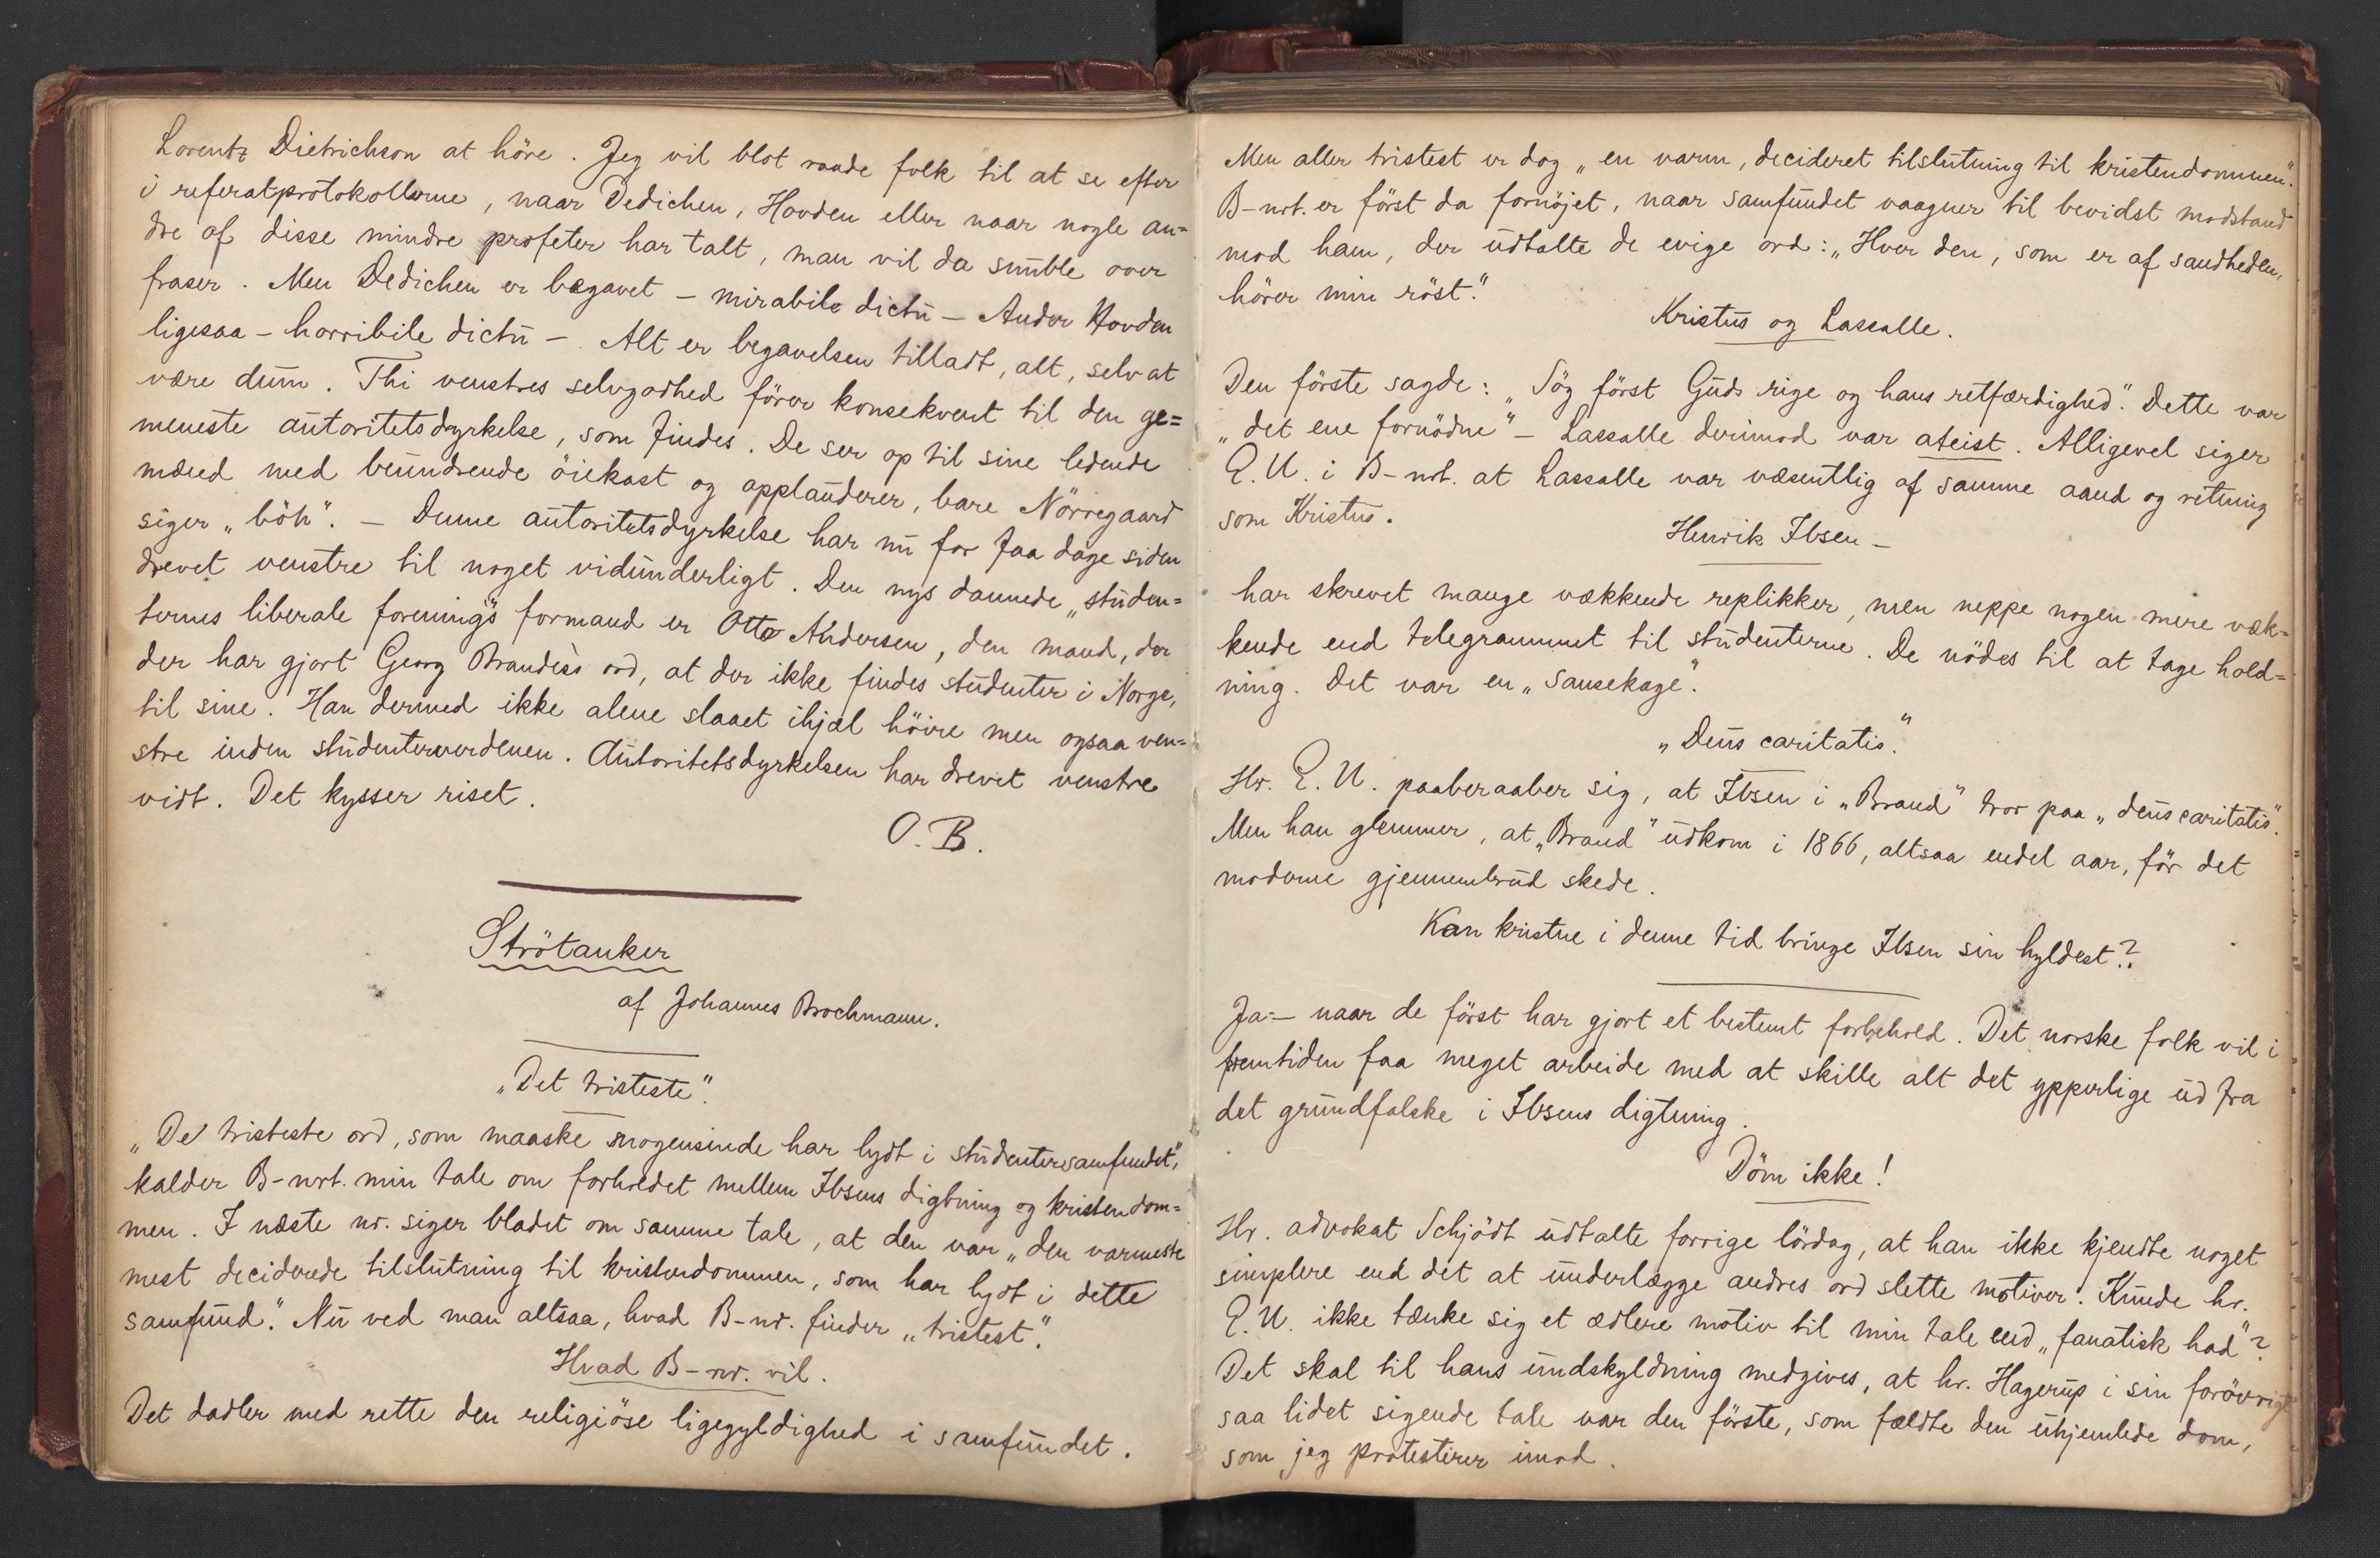 Lorentz Dietrichson at höre. Jeg vil blot raade folk til at se efter
i referatprotokollerne, naar Dedichen, Hovden eller naar nogle an=
dre af disse mindre profeter har talt, man vil da snuble over
fraser. Men Dedichen er begavet – mirabile dictu – Anders Hovden
ligesaa – horribile dictu –. Alt er begavelsen tilladt, alt, selv at
være dum. Thi venstres selvgodhed förer konsekvent til den ge=
meneste autoritetsdyrkelse, som findes. De ser op til sine ledende
mænd med beundrende öiekast og applauderer, bare Nörregaard
siger „böh“. – Denne autoritetsdyrkelse har nu for faa dage siden
drevet venstre til noget vidunderligt. Den nys dannede „studen=
ternes liberale forening“s formand er Otto Andersen, den mand, der
der har gjort Georg Brandes's ord, at der ikke findes studenter i Norge,
til sine. Han dermed ikke alene slaaet ihjæl höire men ogsaa ven=
stre inden studenterverdenen. Autoritetsdyrkelsen har drevet venstre
vidt. Det kysser riset.
O. B.
Strötanker
af Johannes Brochmann.
„Det tristeste“.
„De tristeste ord, som maaske nogensinde har lydt i studentersamfundet“,
kalder B-nrt. min tale om forholdet mellem Ibsens digtning og kristendom=
men. I næste nr. siger bladet om samme tale, at den var „den varmeste
mest deciderede tilslutning til kristendommen, som har lydt i dette
samfund“. Nu ved man altsaa, hvad B-nr. finder „tristest“.
Hvad B-nr. vil.
Det dadler med rette den religiöse ligegyldighed i samfundet.
Men aller tristest er dog „en varm, decideret tilslutning til kristendommen“.
B-nrt. er först da fornöjet, naar samfundet vaagner til bevidst modstand
mod ham, der udtalte de evige ord: „Hver den, som er af sandheden,
hörer min röst“.
Kristus og Lassalle.
Den förste sagde: „Sög först Guds rige og hans retfærdighed“. Dette var
„det ene fornödne“ – Lassalle derimod var ateist. Alligevel siger
E. U. i B-nrt. at Lassalle var væsentlig af samme aand og retning
som Kristus.
Henrik Ibsen –
har skrevet mange vækkende replikker, men neppe nogen mere væk=
kende end telegrammet til studenterne. De nödes til at tage hold=
ning. Det var en „sausekage“.
„Deus caritatis“.
Hr. E. U. paaberaaber sig, at Ibsen i „Brand“ tror paa „deus caritatis“.
Men han glemmer, at „Brand“ udkom i 1866, altsaa endel aar, för det
moderne gjennembrud skede.
Kan kristne i denne tid bringe Ibsen sin hyldest?
Ja – naar de först har gjort et bestemt forbehold. Det norske folk vil i
fremtiden faa meget arbeide med at skille alt det ypperlige ud fra
det grundfalske i Ibsens digtning.
Döm ikke!
Hr. advokat Schjödt udtalte forrige lördag, at han ikke kjendte noget
simplere end det at underlægge andres ord slette motiver. Kunde hr.
E. U. ikke tænke sig et ædlere motiv til min tale end „fanatisk had“?
Det skal til hans undskyldning medgives, at hr. Hagerup i sin forövrigt
saa lidet sigende tale var den förste, som fældte den uhjemlede dom,
som jeg protesterer imod.